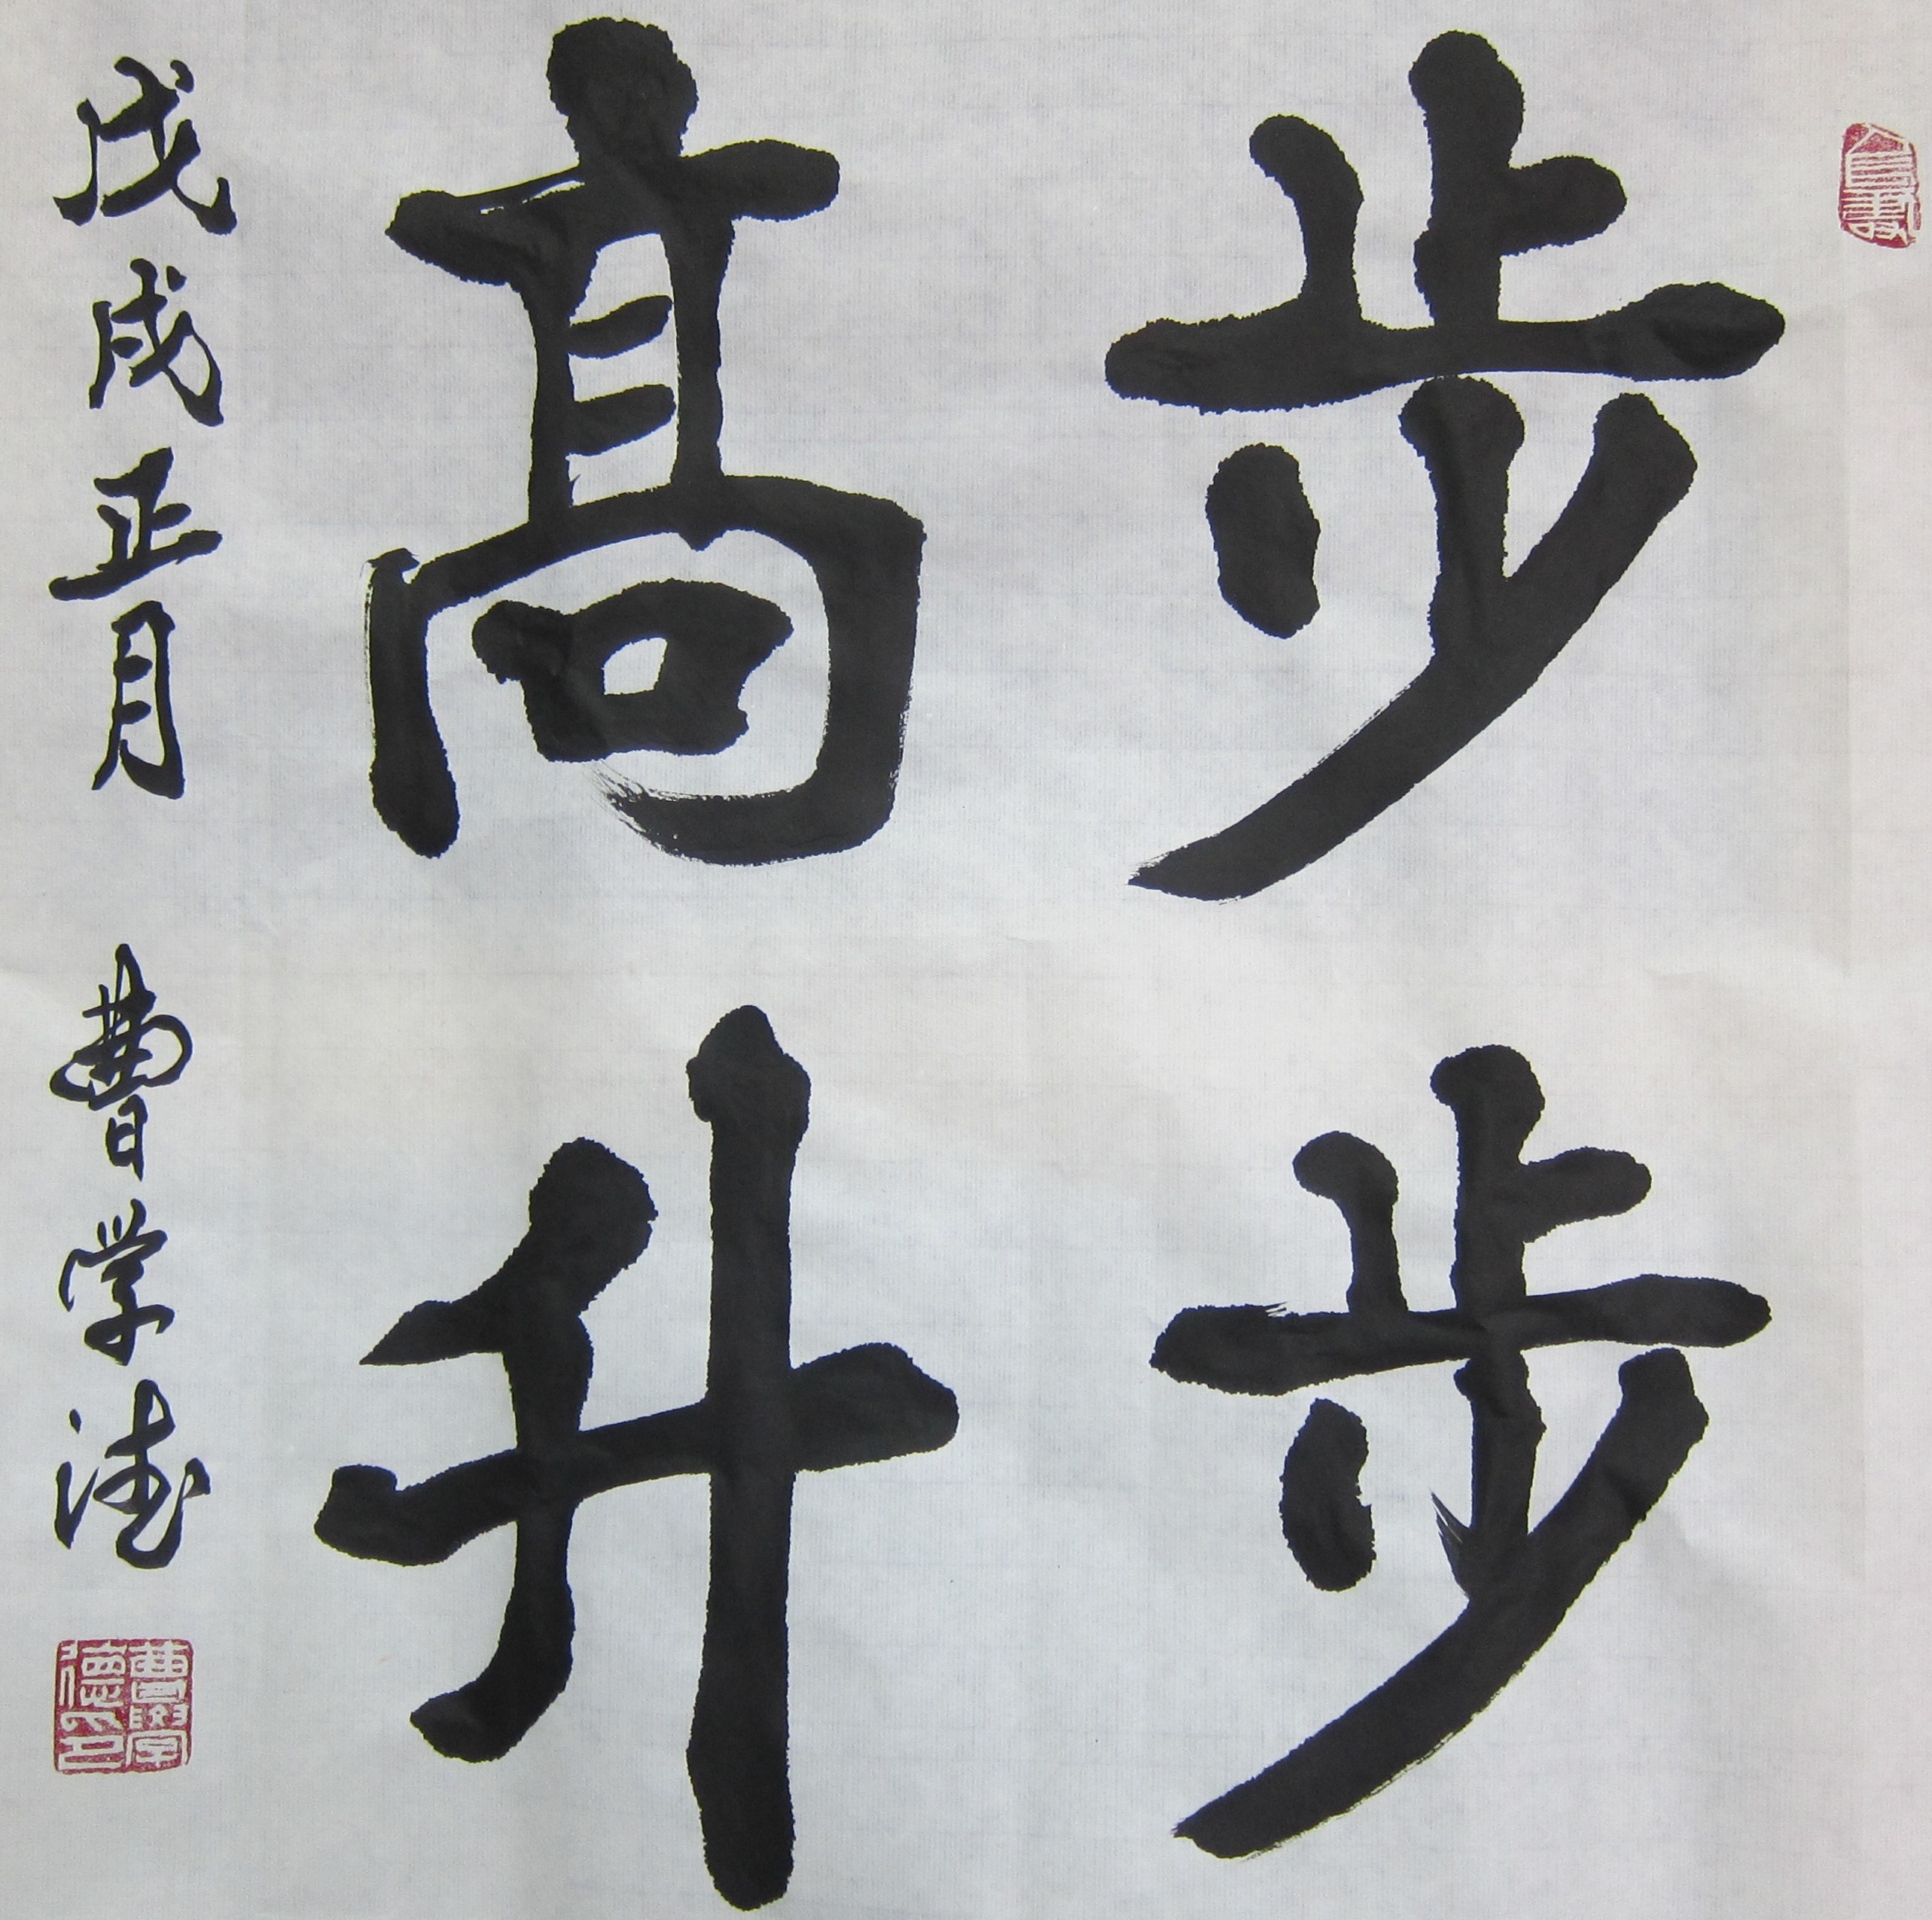 步步
髙升
戊戌正月 曹学德
曹學德印